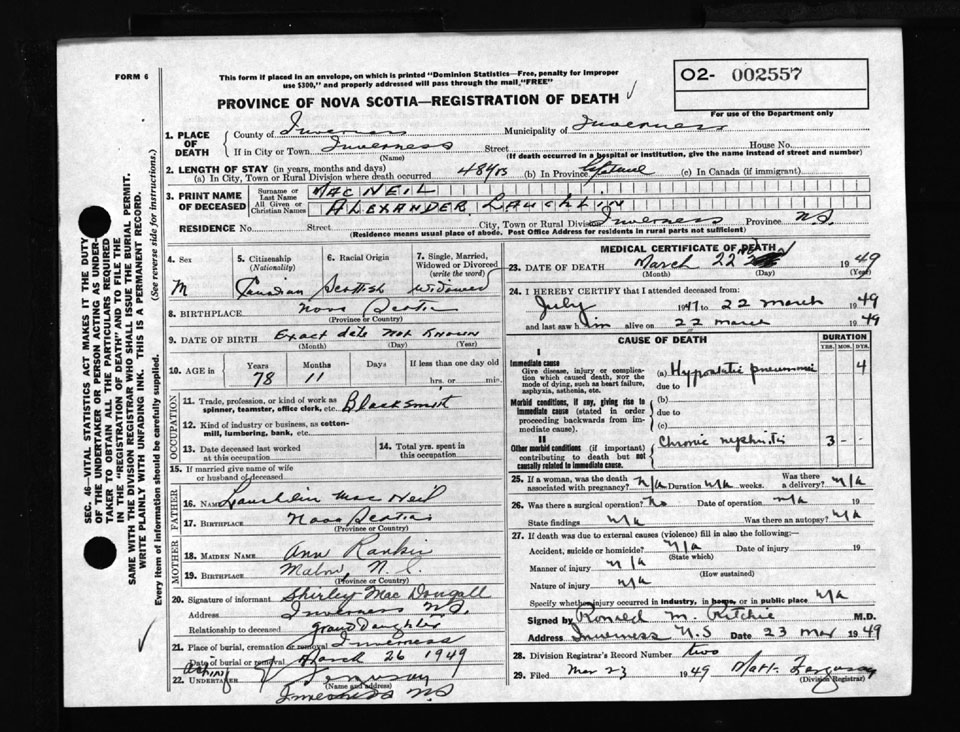 FORM 6
This form if placed in an envelope, on which is printed "Dominion Statistics—Free, penalty for improper
use $300," and properly addressed will pass through the mail, "FREE"
O2- 002557
For use of the Department only
PROVINCE OF NOVA SCOTIA—REGISTRATION OF DEATH
1. PLACE OF DEATH
County of Inverness Municipality of Inverness
If in City or Town Inverness Street House No.
(Name) (If death occurred in a hospital or institution, give the name instead of street and number)
2. LENGTH OF STAY (in years, months and days)
(a) In City, Town or Rural Division where death occurred 48 yrs (b) In Province Lifetime (c) In Canada (if immigrant)
3. PRINT NAME OF DECEASED
Surname or Last Name MACNEIL
All Given or Christian Names ALEXANDER LAUCHLIN
RESIDENCE No. Street City, Town or Rural Division Inverness Province N.S.
(Residence means usual place of abode. Post Office Address for residents in rural parts not sufficient)
4. Sex
M
5. Citizenship (Nationality)
Canadian
6. Racial Origin
Scottish
7. Single, Married, Widowed or Divorced (write the word)
Widowed
8. BIRTHPLACE Nova Scotia
(Province or Country)
9. DATE OF BIRTH Exact date not known
(Month) (Day) (Year)
10. AGE in Years Months Days If less than one day old
78 11 hrs, or min.
OCCUPATION
11. Trade, profession, or kind of work as spinner, teamster, office clerk, etc. Blacksmith
12. Kind of industry or business, as cotton-mill, lumbering, bank, etc.
13. Date deceased last worked at this occupation
14. Total yrs. spent in this occupation
15. If married give name of wife or husband of deceased
FATHER
16. NAME Lauchlin Mac Neil
17. BIRTHPLACE Nova Scotia
(Province or Country)
MOTHER
18. MAIDEN NAME Ann Rankin
19. BIRTHPLACE Mabou, N.S.
(Province or Country)
20. Signature of informant Shirley Mac Dougall
Address Inverness N.S.
Relationship to deceased Grand Daughter
21. Place of burial, cremation or removal Inverness
Date of burial or removal March 26 1949
22. Acting UNDERTAKER Ferguson
(Name and address)
Inverness N.S.
MEDICAL CERTIFICATE OF DEATH
23. DATE OF DEATH March 22 1949
(Month) (Day) (Year)
24. I HEREBY CERTIFY that I attended deceased from:
July 1947 to 22 March 1949
and last saw him alive on 22 March 1949
CAUSE OF DEATH
DURATION
YRS. MOS. DYS.
I
Immediate cause
Give disease, injury or complication which caused death, not the mode of dying, such as heart failure, asphyxia, asthenia, etc.
(a) Hypostatic pneumonia 4
due to
Morbid conditions, if any, giving rise to immediate cause (stated in order proceeding backwards from immediate cause).
(b)
due to
(c)
II
Other morbid conditions (if important) contributing to death but not causally related to immediate cause.
Chronic nephritis 3 - -
25. If a woman, was the death associated with pregnancy? N/A Duration N/A weeks. Was there a delivery? N/A
26. Was there a surgical operation? No Date of operation N/A 19
State findings N/A Was there an autopsy? N/A
27. If death was due to external causes (violence) fill in also the following:—
Accident, suicide or homicide? N/A Date of injury 19
(State which)
Manner of injury N/A
(How sustained)
Nature of injury N/A
Specify whether injury occurred in industry, in home, or in public place N/A
Signed by Ronald M Ritchie M.D.
Address Inverness N.S Date 23 Mar 1949
28. Division Registrar's Record Number two
29. Filed Mar 23 1949 Matt. Ferguson
(Division Registrar)
SEC. 46—VITAL STATISTICS ACT MAKES IT THE DUTY
OF THE UNDERTAKER OR PERSON ACTING AS UNDER-
TAKER TO OBTAIN ALL THE PARTICULARS REQUIRED
IN THE "REGISTRATION OF DEATH" AND TO FILE THE
SAME WITH THE DIVISION REGISTRAR WHO SHALL ISSUE THE BURIAL PERMIT.
WRITE PLAINLY WITH UNFADING INK. THIS IS A PERMANENT RECORD.
Every item of information should be carefully supplied. (See reverse side for instructions.)